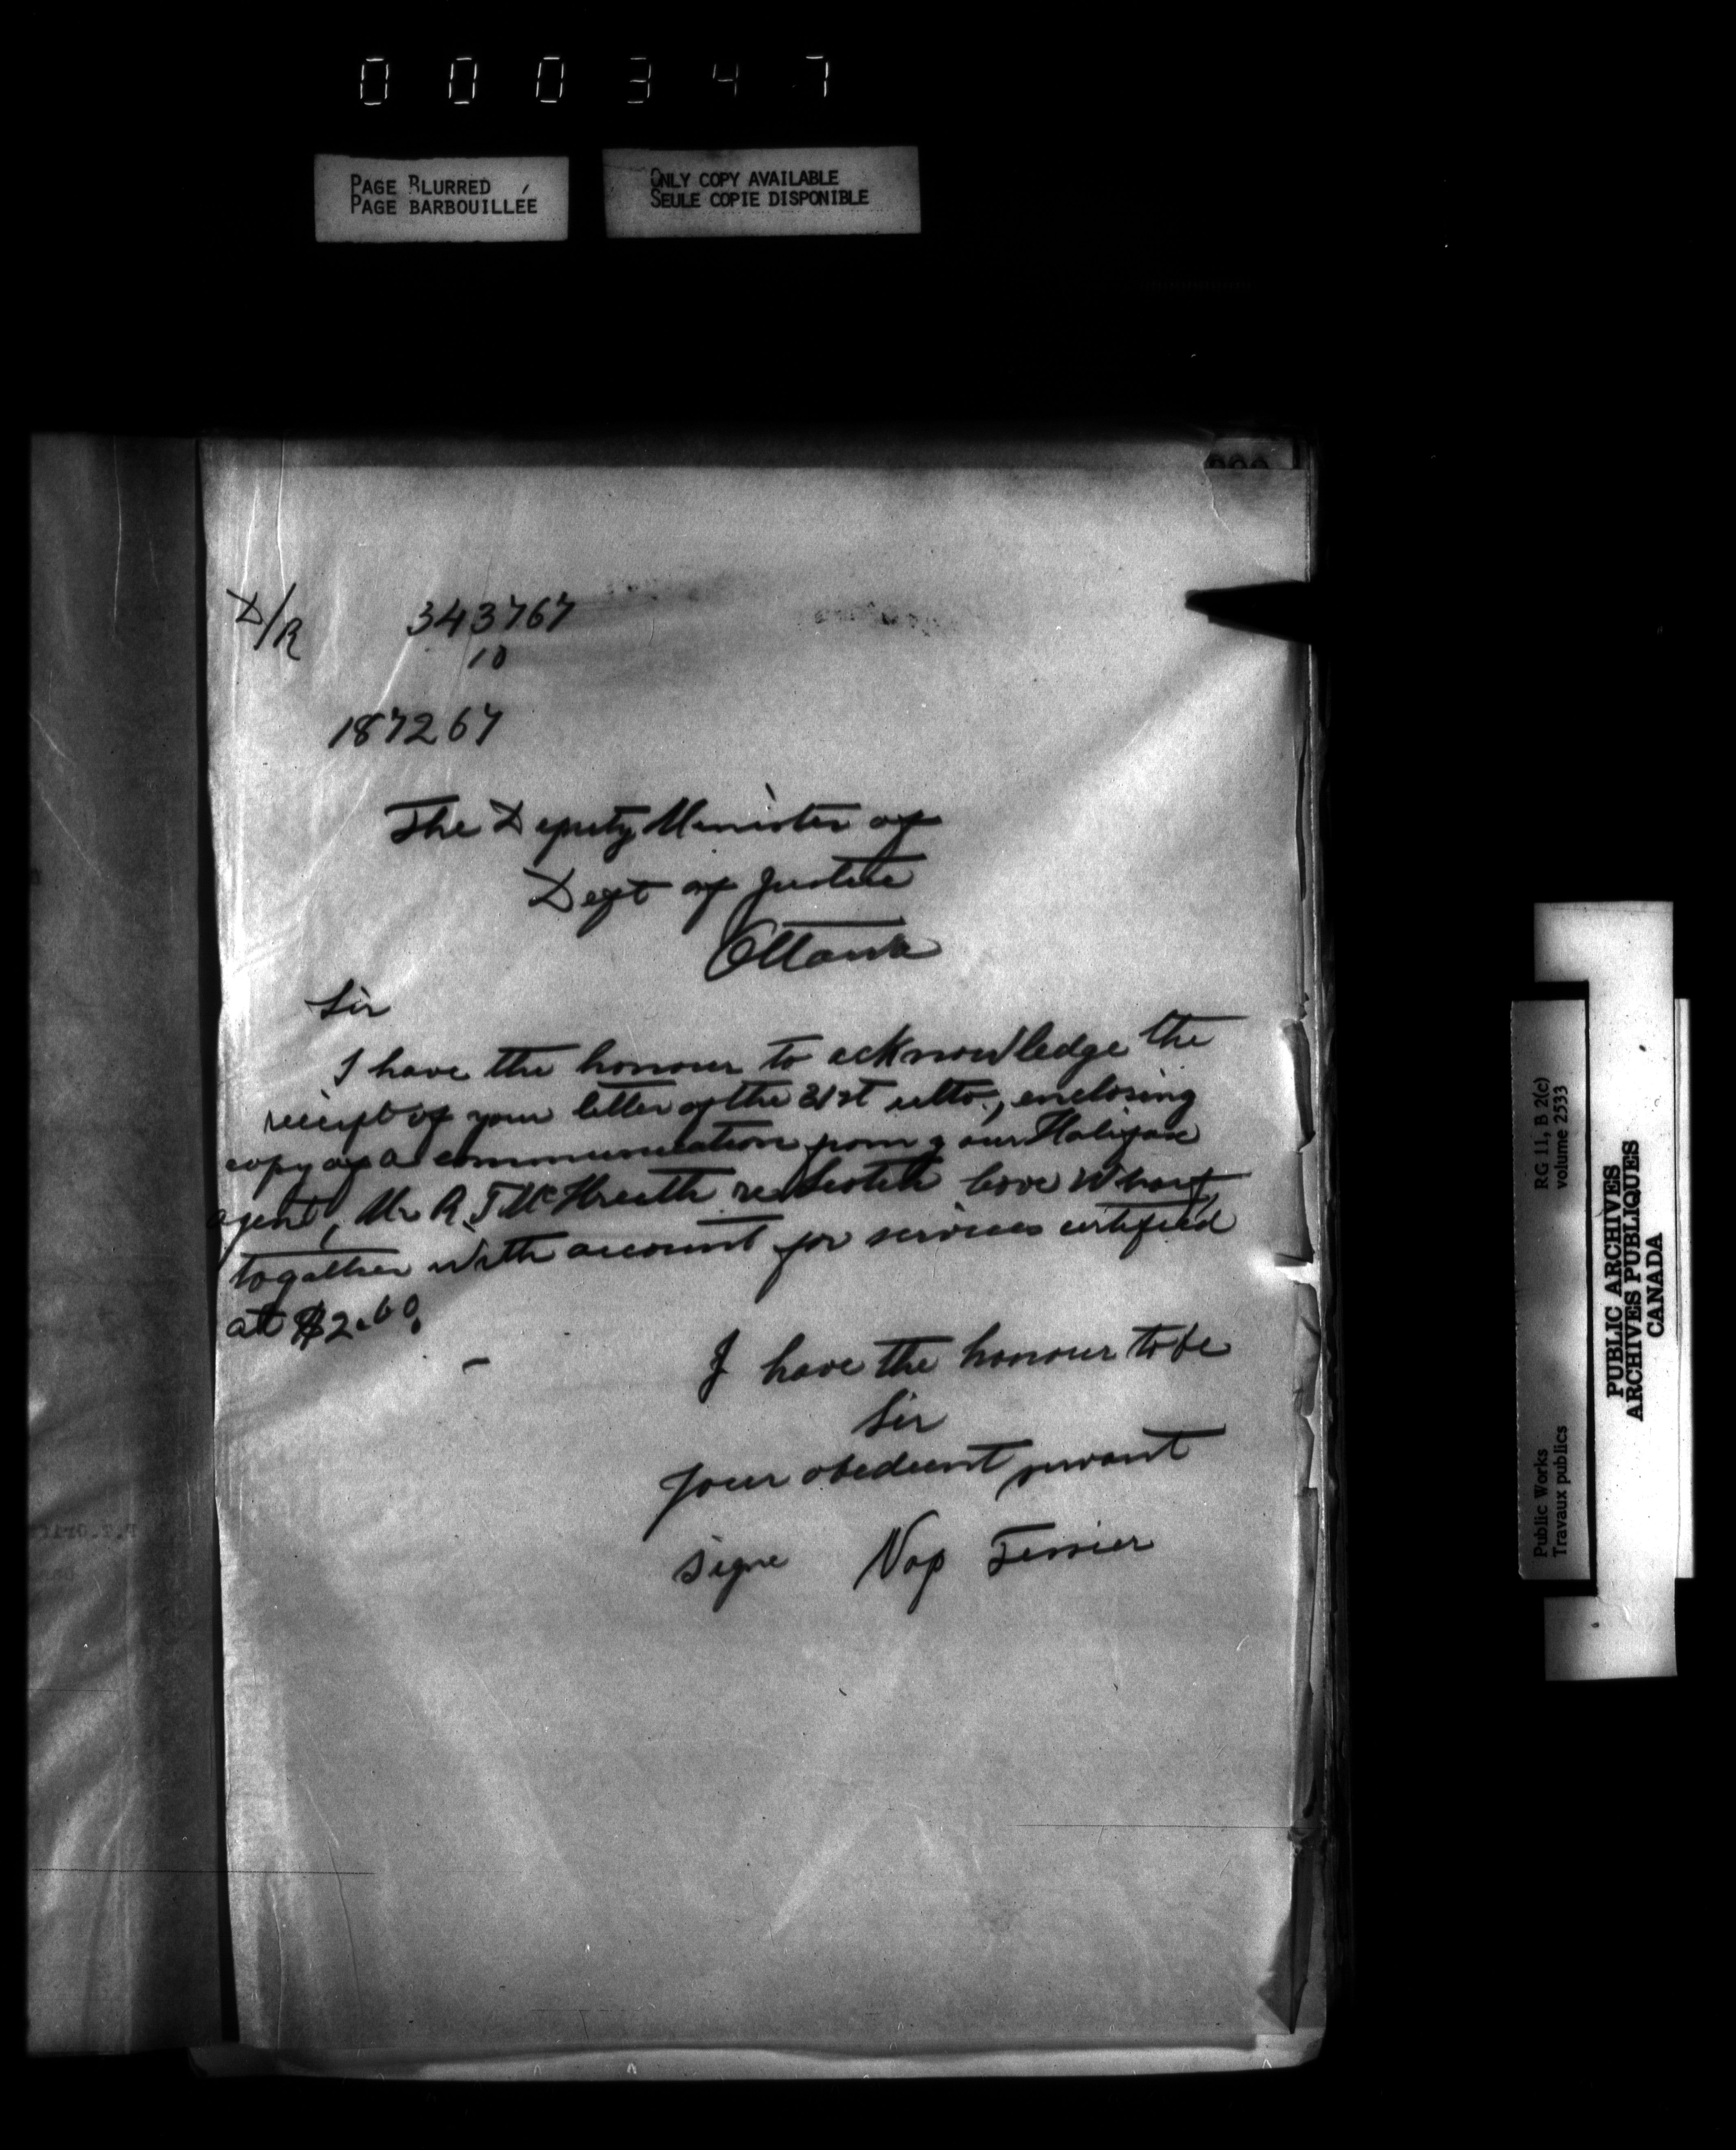 000347
PAGE BLURRED
PAGE BARBOUILLÉE
ONLY COPY AVAILABLE
SEULE COPIE DISPONIBLE
D/R 343767
10
187267
The Deputy Minister of
Dept of Justice
Ottawa
Sir
I have the honour to acknowledge the
receipt of your letter of the 21st ulto., enclosing
copy of a communication from your Halifax
agent, Mr R. T. McIlreith re Scotch Cove Wharf
together with account for services certified
at $2.60.
I have the honour to be
Sir
Your obedient servant
Signe Nap Tessier
Public Works RG 11, B 2(c)
Travaux publics volume 2533
PUBLIC ARCHIVES
ARCHIVES PUBLIQUES
CANADA